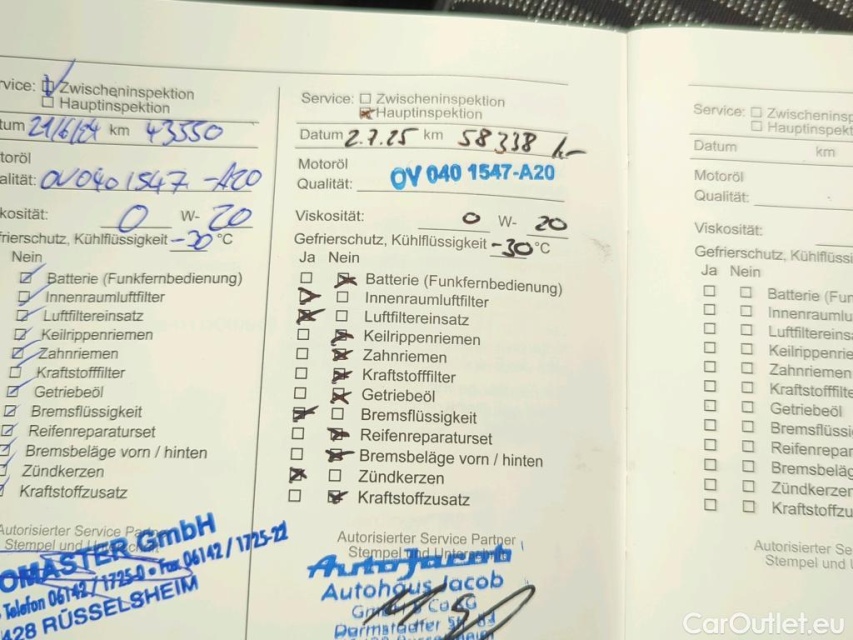 vice: Zwischeninspektion
Hauptinspektion
tum 21/6/24 km 43550
toröl
alität: OV 040 1547 -A20
kosität: 0 W- 20
frierschutz, Kühlflüssigkeit -30 °C
Nein
Batterie (Funkfernbedienung)
Innenraumluftfilter
Luftfiltereinsatz
Keilrippenriemen
Zahnriemen
Kraftstofffilter
Getriebeöl
Bremsflüssigkeit
Reifenreparaturset
Bremsbeläge vorn / hinten
Zündkerzen
Kraftstoffzusatz
Autorisierter Service Partner
Stempel und
OMASTER GmbH
Telefon 06142 / 1725-0 • Fax 06142 / 1725-22
428 RÜSSELSHEIM
Service: Zwischeninspektion
Hauptinspektion
Datum 2.7.25 km 58338
Motoröl
Qualität: OV 040 1547-A20
Viskosität: 0 W- 20
Gefrierschutz, Kühlflüssigkeit -30 °C
Ja Nein
Batterie (Funkfernbedienung)
Innenraumluftfilter
Luftfiltereinsatz
Keilrippenriemen
Zahnriemen
Kraftstofffilter
Getriebeöl
Bremsflüssigkeit
Reifenreparaturset
Bremsbeläge vorn / hinten
Zündkerzen
Kraftstoffzusatz
Autorisierter Service Partner
Stempel und Unterschrift
Auto Jacob
Autohaus Jacob
GmbH & Co KG
Darmstädter Str.
Service: Zwischeninsp
Hauptinspekt
Datum km
Motoröl
Qualität:
Viskosität:
Gefrierschutz, Kühlflüssi
Ja Nein
Batterie (Fun
Innenraumlu
Luftfiltereins
Keilrippenrie
Zahnriemen
Kraftstofffilte
Getriebeöl
Bremsflüssi
Reifenrepar
Bremsbeläg
Zündkerzen
Kraftstoffzu
Autorisierter Se
Stempel un
CarOutlet.eu